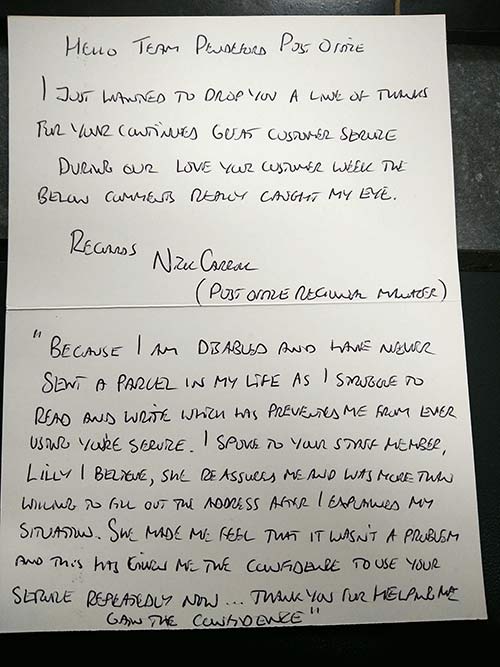 HELLO TEAM PENDEFORD POST OFFICE
I JUST WANTED TO DROP YOU A LINE OF THANKS
FOR YOUR CONTINUED GREAT CUSTOMER SERVICE
DURING OUR LOVE YOUR CUSTOMER WEEK THE
BELOW COMMENTS REALLY CAUGHT MY EYE.
REGARDS
NICK CARROL
(POST OFFICE REGIONAL MANAGER)
"BECAUSE I AM DISABLED AND HAVE NEVER
SENT A PARCEL IN MY LIFE AS I STRUGGLE TO
READ AND WRITE WHICH HAS PREVENTED ME FROM EVER
USING YOU'RE SERVICE. I SPOKE TO YOUR STAFF MEMBER,
LILLY I BELIEVE, SHE REASSURED ME AND WAS MORE THAN
WILLING TO FILL OUT THE ADDRESS AFTER I EXPLAINED MY
SITUATION. SHE MADE ME FEEL THAT IT WASN'T A PROBLEM
AND THIS HAS GIVEN ME THE CONFIDENCE TO USE YOUR
SERVICE REPEATEDLY NOW... THANK YOU FOR HELPING ME
GAIN THE CONFIDENCE"